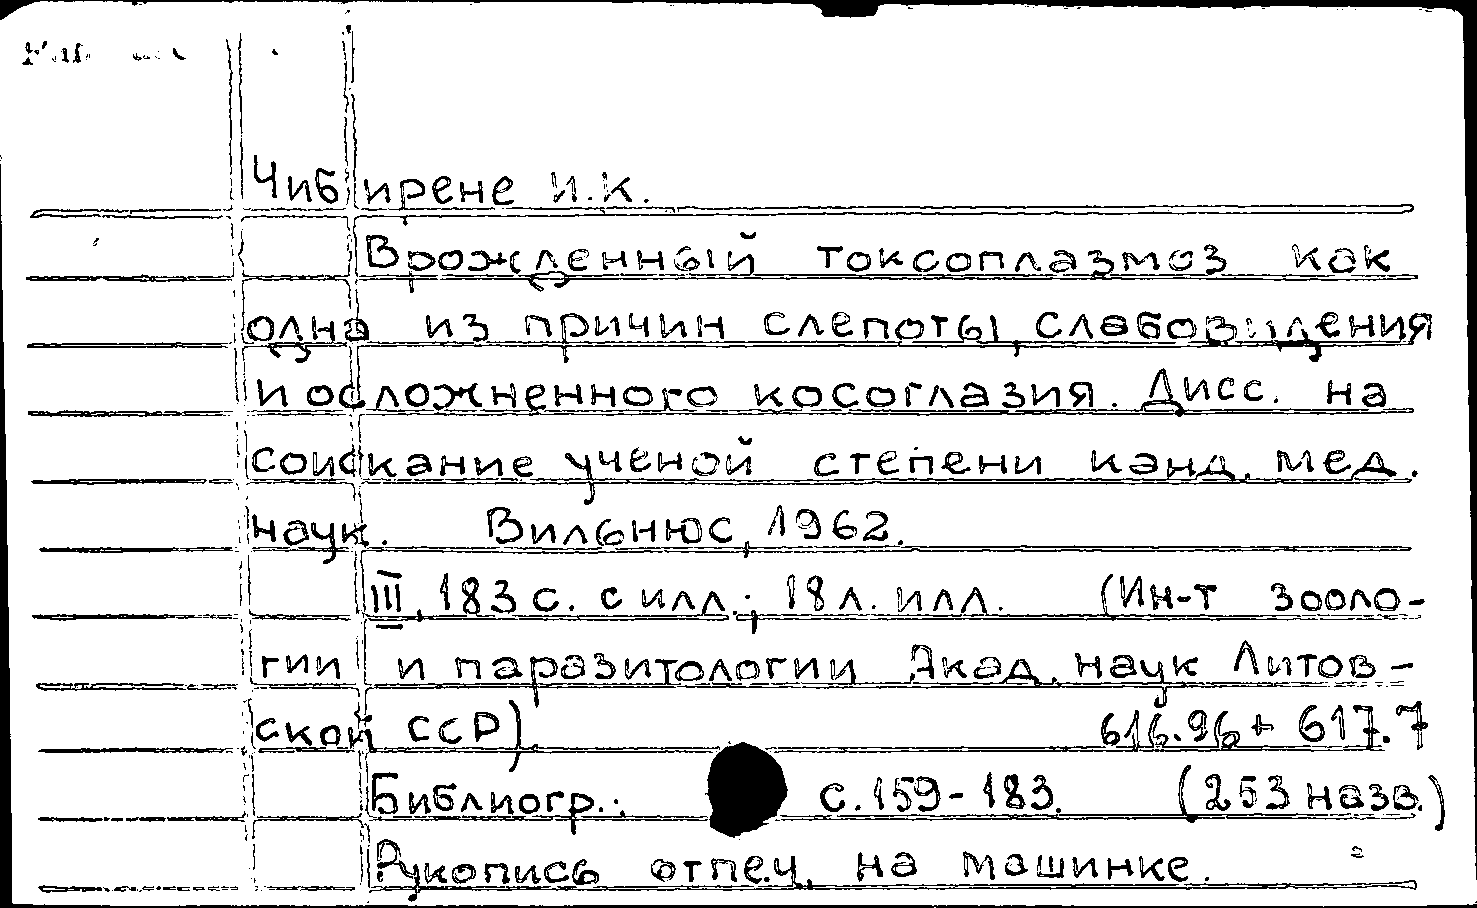 Чибирене И.К.
Врожденный токсоплазмоз как
одна из причин слепоты, слабовидения
и осложненного косоглазия. Дисс. на
соискание ученой степени канд. мед.
наук. Вильнюс, 1962.
III, 183 с. с илл.; 18 л. илл. (Ин-т зооло-
гии и паразитологии Акад. наук Литов-
ской ССР).
616.96 + 617.7
Библиогр.: с. 159-183. (253 назв.)
Рукопись отпеч. на машинке.